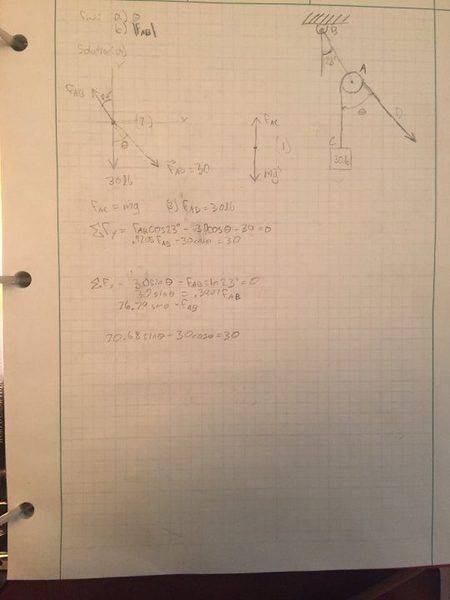 Find: a) θ
b) |FAB|
Solution: a)
B
Y
FAB
23°
23°
A
(2)
X
FAC
θ
D
θ
(1)
C
FAD = 30
30 lb
30 lb
mg
FAC = mg (3) FAD = 30 lb
ΣFy = FAB cos 23° - 30 cos θ - 30 = 0
.9205 FAB - 30 cos θ = 30
ΣFx = 30 sin θ - FAB sin 23° = 0
30 sin θ = .3907 FAB
76.79 sin θ = FAB
70.68 sin θ - 30 cos θ = 30